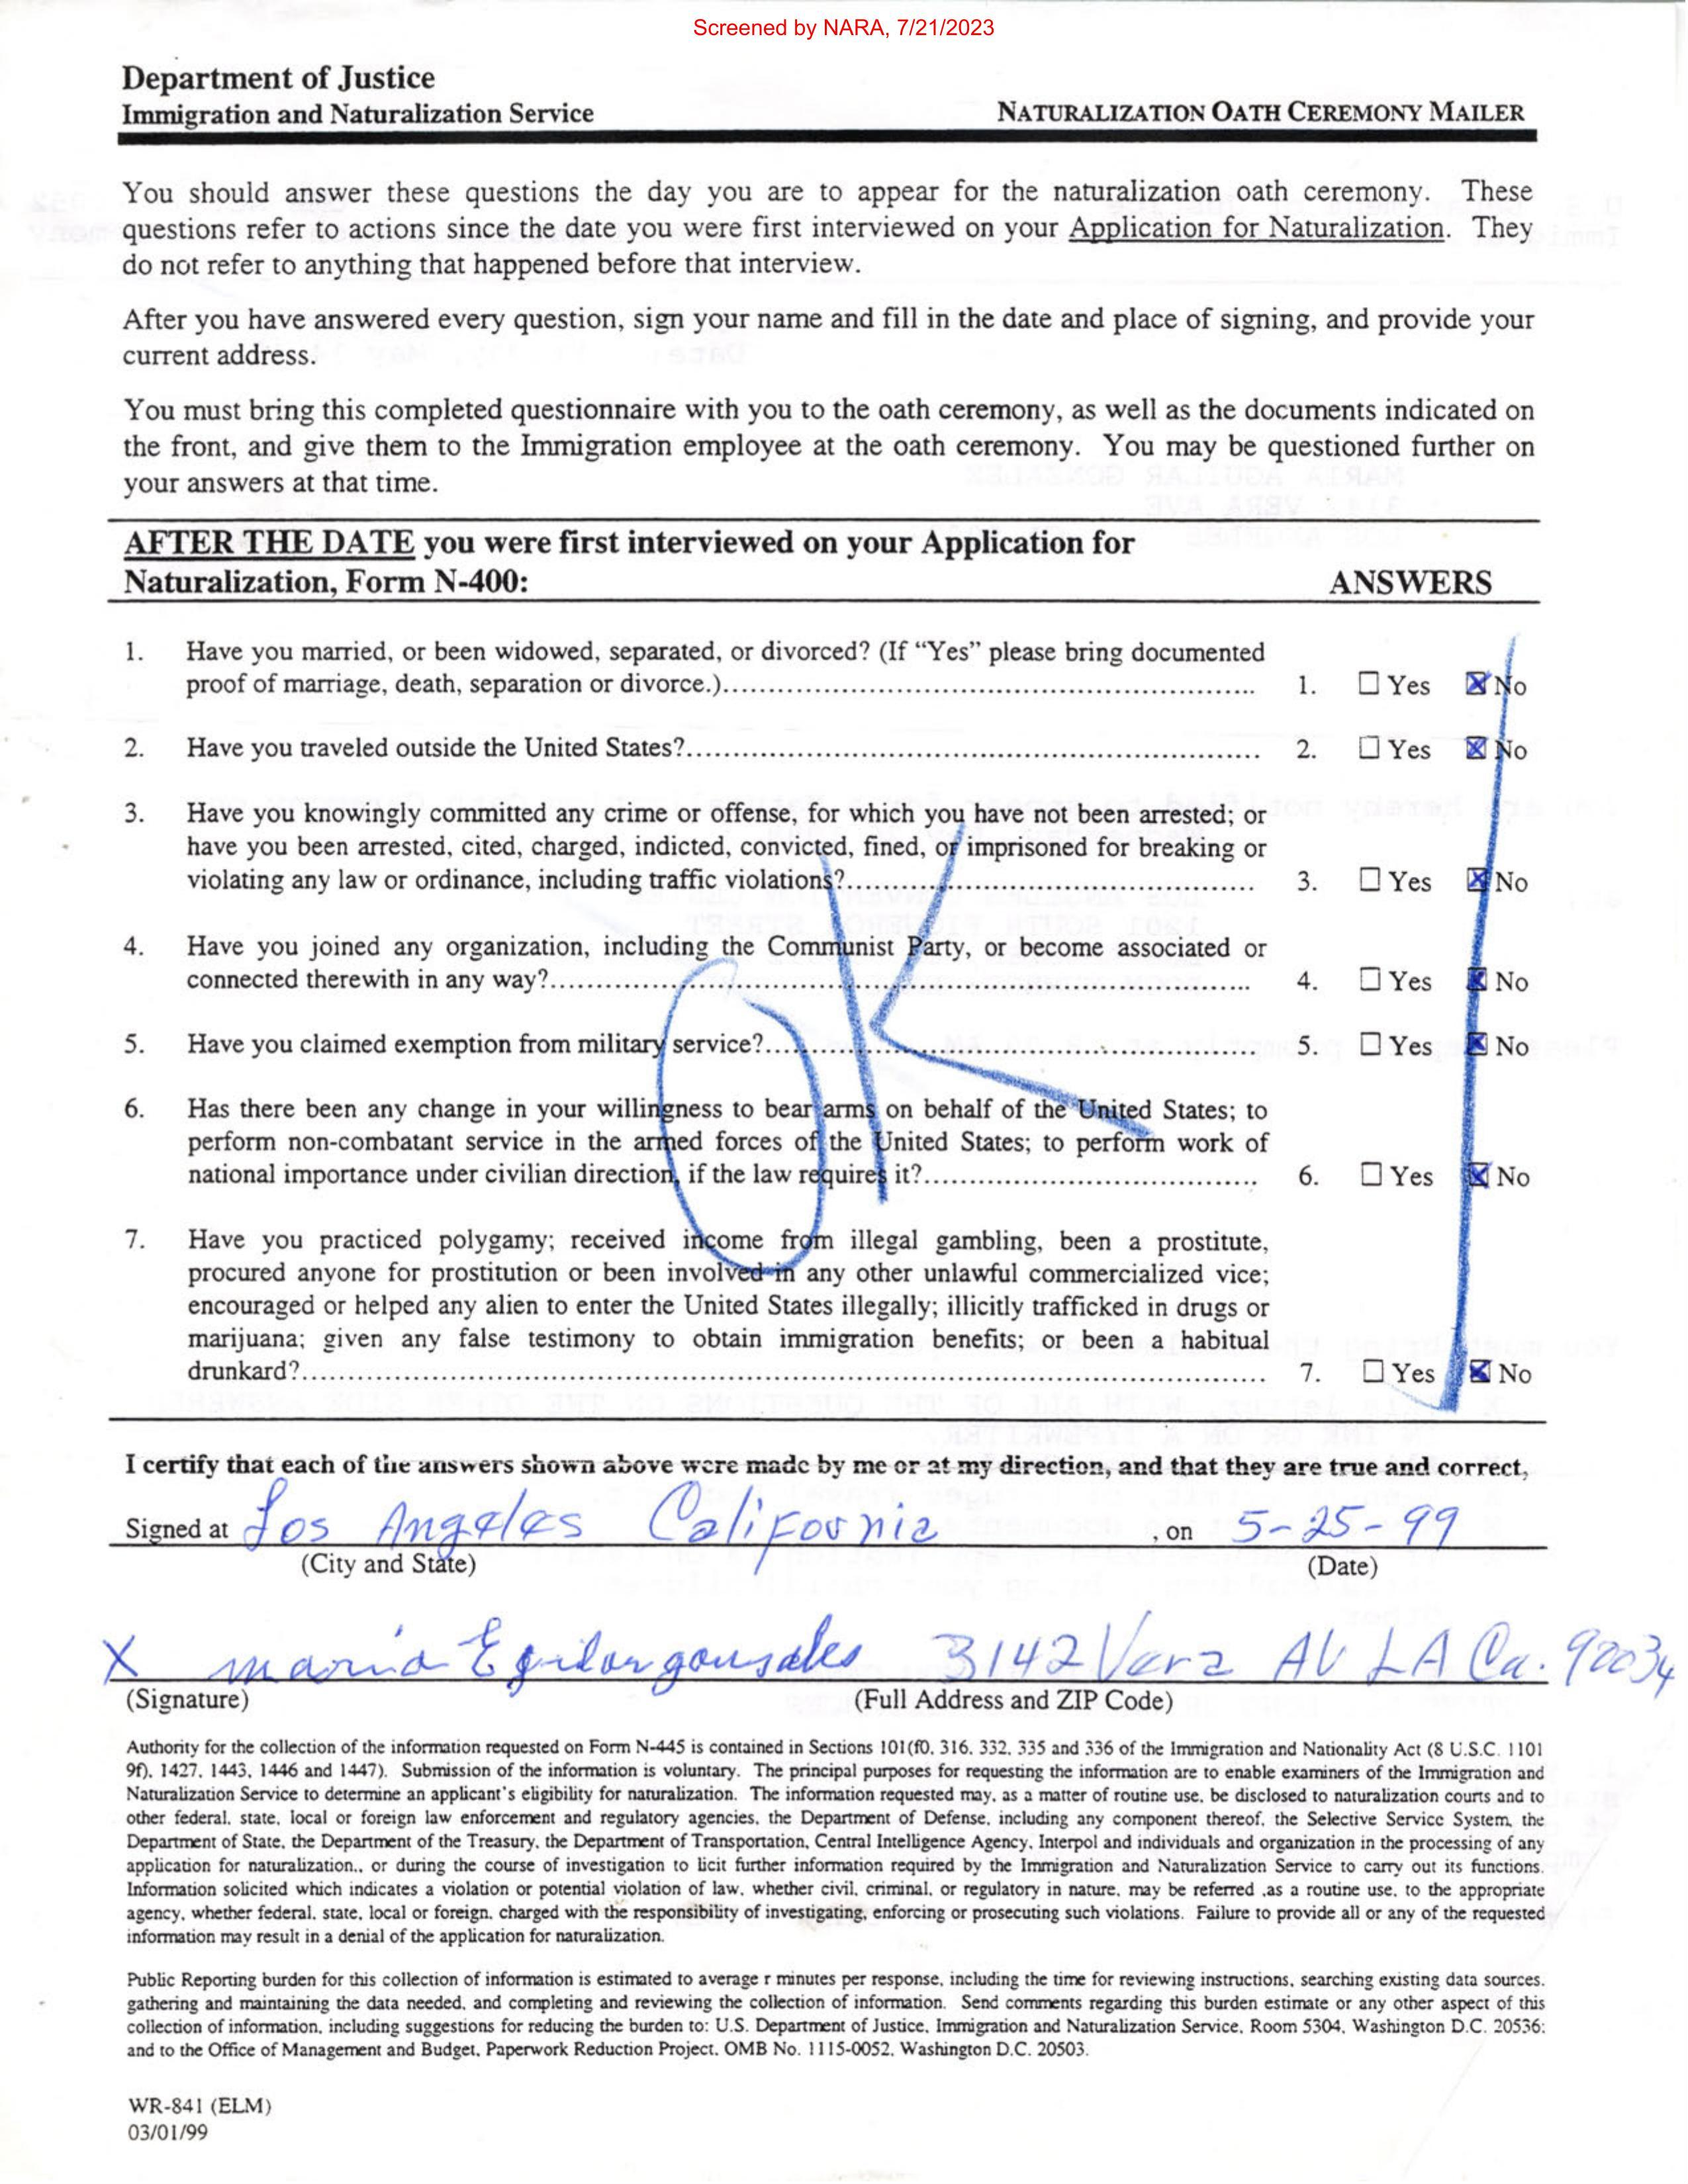 Screened by NARA, 7/21/2023
Department of Justice
Immigration and Naturalization Service NATURALIZATION OATH CEREMONY MAILER
You should answer these questions the day you are to appear for the naturalization oath ceremony. These
questions refer to actions since the date you were first interviewed on your Application for Naturalization. They
do not refer to anything that happened before that interview.
After you have answered every question, sign your name and fill in the date and place of signing, and provide your
current address.
You must bring this completed questionnaire with you to the oath ceremony, as well as the documents indicated on
the front, and give them to the Immigration employee at the oath ceremony. You may be questioned further on
your answers at that time.
AFTER THE DATE you were first interviewed on your Application for
Naturalization, Form N-400: ANSWERS
1. Have you married, or been widowed, separated, or divorced? (If “Yes” please bring documented
proof of marriage, death, separation or divorce.)..... 1. ☐ Yes ☒ No
2. Have you traveled outside the United States?..... 2. ☐ Yes ☒ No
3. Have you knowingly committed any crime or offense, for which you have not been arrested; or
have you been arrested, cited, charged, indicted, convicted, fined, or imprisoned for breaking or
violating any law or ordinance, including traffic violations?..... 3. ☐ Yes ☒ No
4. Have you joined any organization, including the Communist Party, or become associated or
connected therewith in any way?..... 4. ☐ Yes ☒ No
5. Have you claimed exemption from military service?..... 5. ☐ Yes ☒ No
6. Has there been any change in your willingness to bear arms on behalf of the United States; to
perform non-combatant service in the armed forces of the United States; to perform work of
national importance under civilian direction, if the law requires it?..... 6. ☐ Yes ☒ No
7. Have you practiced polygamy; received income from illegal gambling, been a prostitute,
procured anyone for prostitution or been involved in any other unlawful commercialized vice;
encouraged or helped any alien to enter the United States illegally; illicitly trafficked in drugs or
marijuana; given any false testimony to obtain immigration benefits; or been a habitual
drunkard?..... 7. ☐ Yes ☒ No
OK
I certify that each of the answers shown above were made by me or at my direction, and that they are true and correct,
Signed at Los Angeles California , on 5-25-99
(City and State) (Date)
X maria Egilar gonsales 3142 Vera AV LA Ca. 90034
(Signature) (Full Address and ZIP Code)
Authority for the collection of the information requested on Form N-445 is contained in Sections 101(f0, 316, 332, 335 and 336 of the Immigration and Nationality Act (8 U.S.C. 1101
9f), 1427, 1443, 1446 and 1447). Submission of the information is voluntary. The principal purposes for requesting the information are to enable examiners of the Immigration and
Naturalization Service to determine an applicant's eligibility for naturalization. The information requested may, as a matter of routine use, be disclosed to naturalization courts and to
other federal, state, local or foreign law enforcement and regulatory agencies, the Department of Defense, including any component thereof, the Selective Service System, the
Department of State, the Department of the Treasury, the Department of Transportation, Central Intelligence Agency, Interpol and individuals and organization in the processing of any
application for naturalization., or during the course of investigation to licit further information required by the Immigration and Naturalization Service to carry out its functions.
Information solicited which indicates a violation or potential violation of law, whether civil, criminal, or regulatory in nature, may be referred ,as a routine use, to the appropriate
agency, whether federal, state, local or foreign, charged with the responsibility of investigating, enforcing or prosecuting such violations. Failure to provide all or any of the requested
information may result in a denial of the application for naturalization.
Public Reporting burden for this collection of information is estimated to average r minutes per response, including the time for reviewing instructions, searching existing data sources,
gathering and maintaining the data needed, and completing and reviewing the collection of information. Send comments regarding this burden estimate or any other aspect of this
collection of information, including suggestions for reducing the burden to: U.S. Department of Justice, Immigration and Naturalization Service, Room 5304, Washington D.C. 20536:
and to the Office of Management and Budget, Paperwork Reduction Project, OMB No. 1115-0052, Washington D.C. 20503.
WR-841 (ELM)
03/01/99